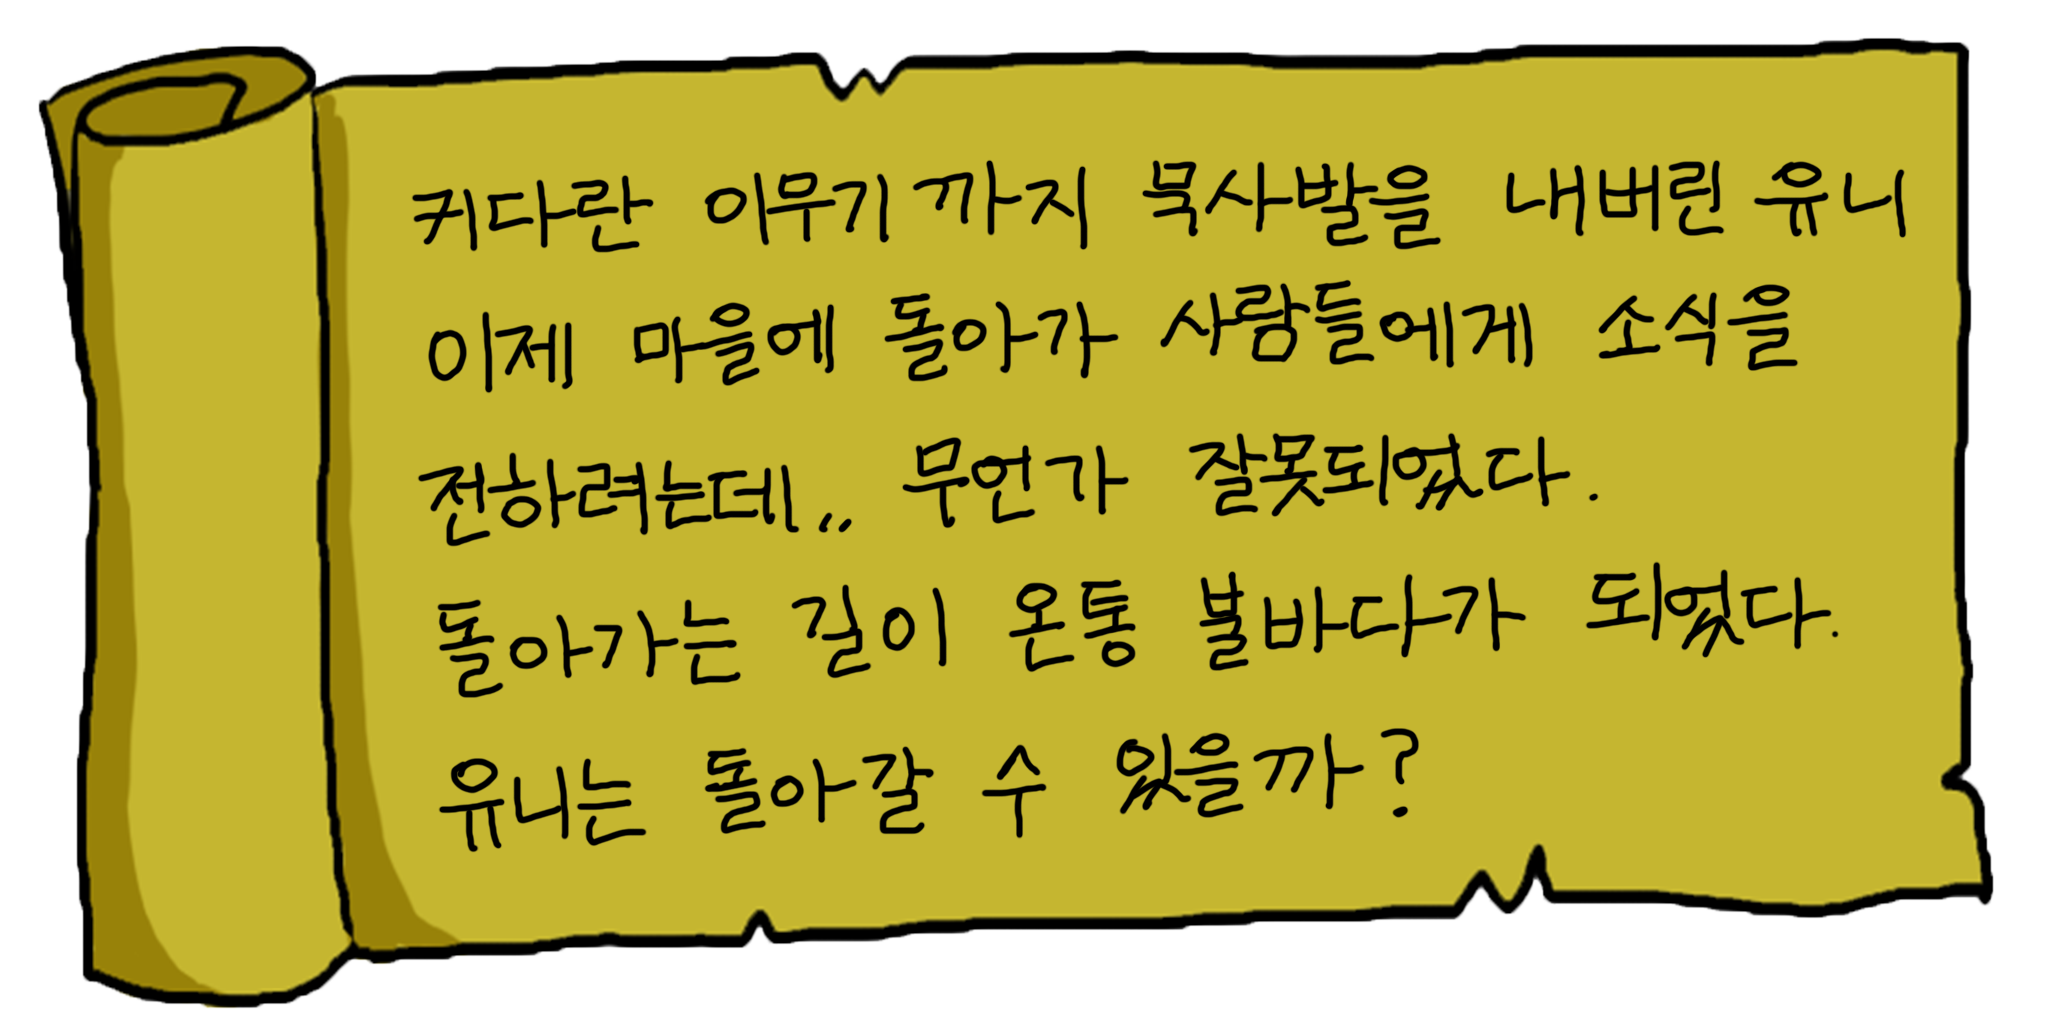 커다란 이무기까지 묵사발을 내버린 유니
이제 마을에 돌아가 사람들에게 소식을
전하려는데... 무언가 잘못되었다.
돌아가는 길이 온통 불바다가 되었다.
유니는 돌아갈 수 있을까?